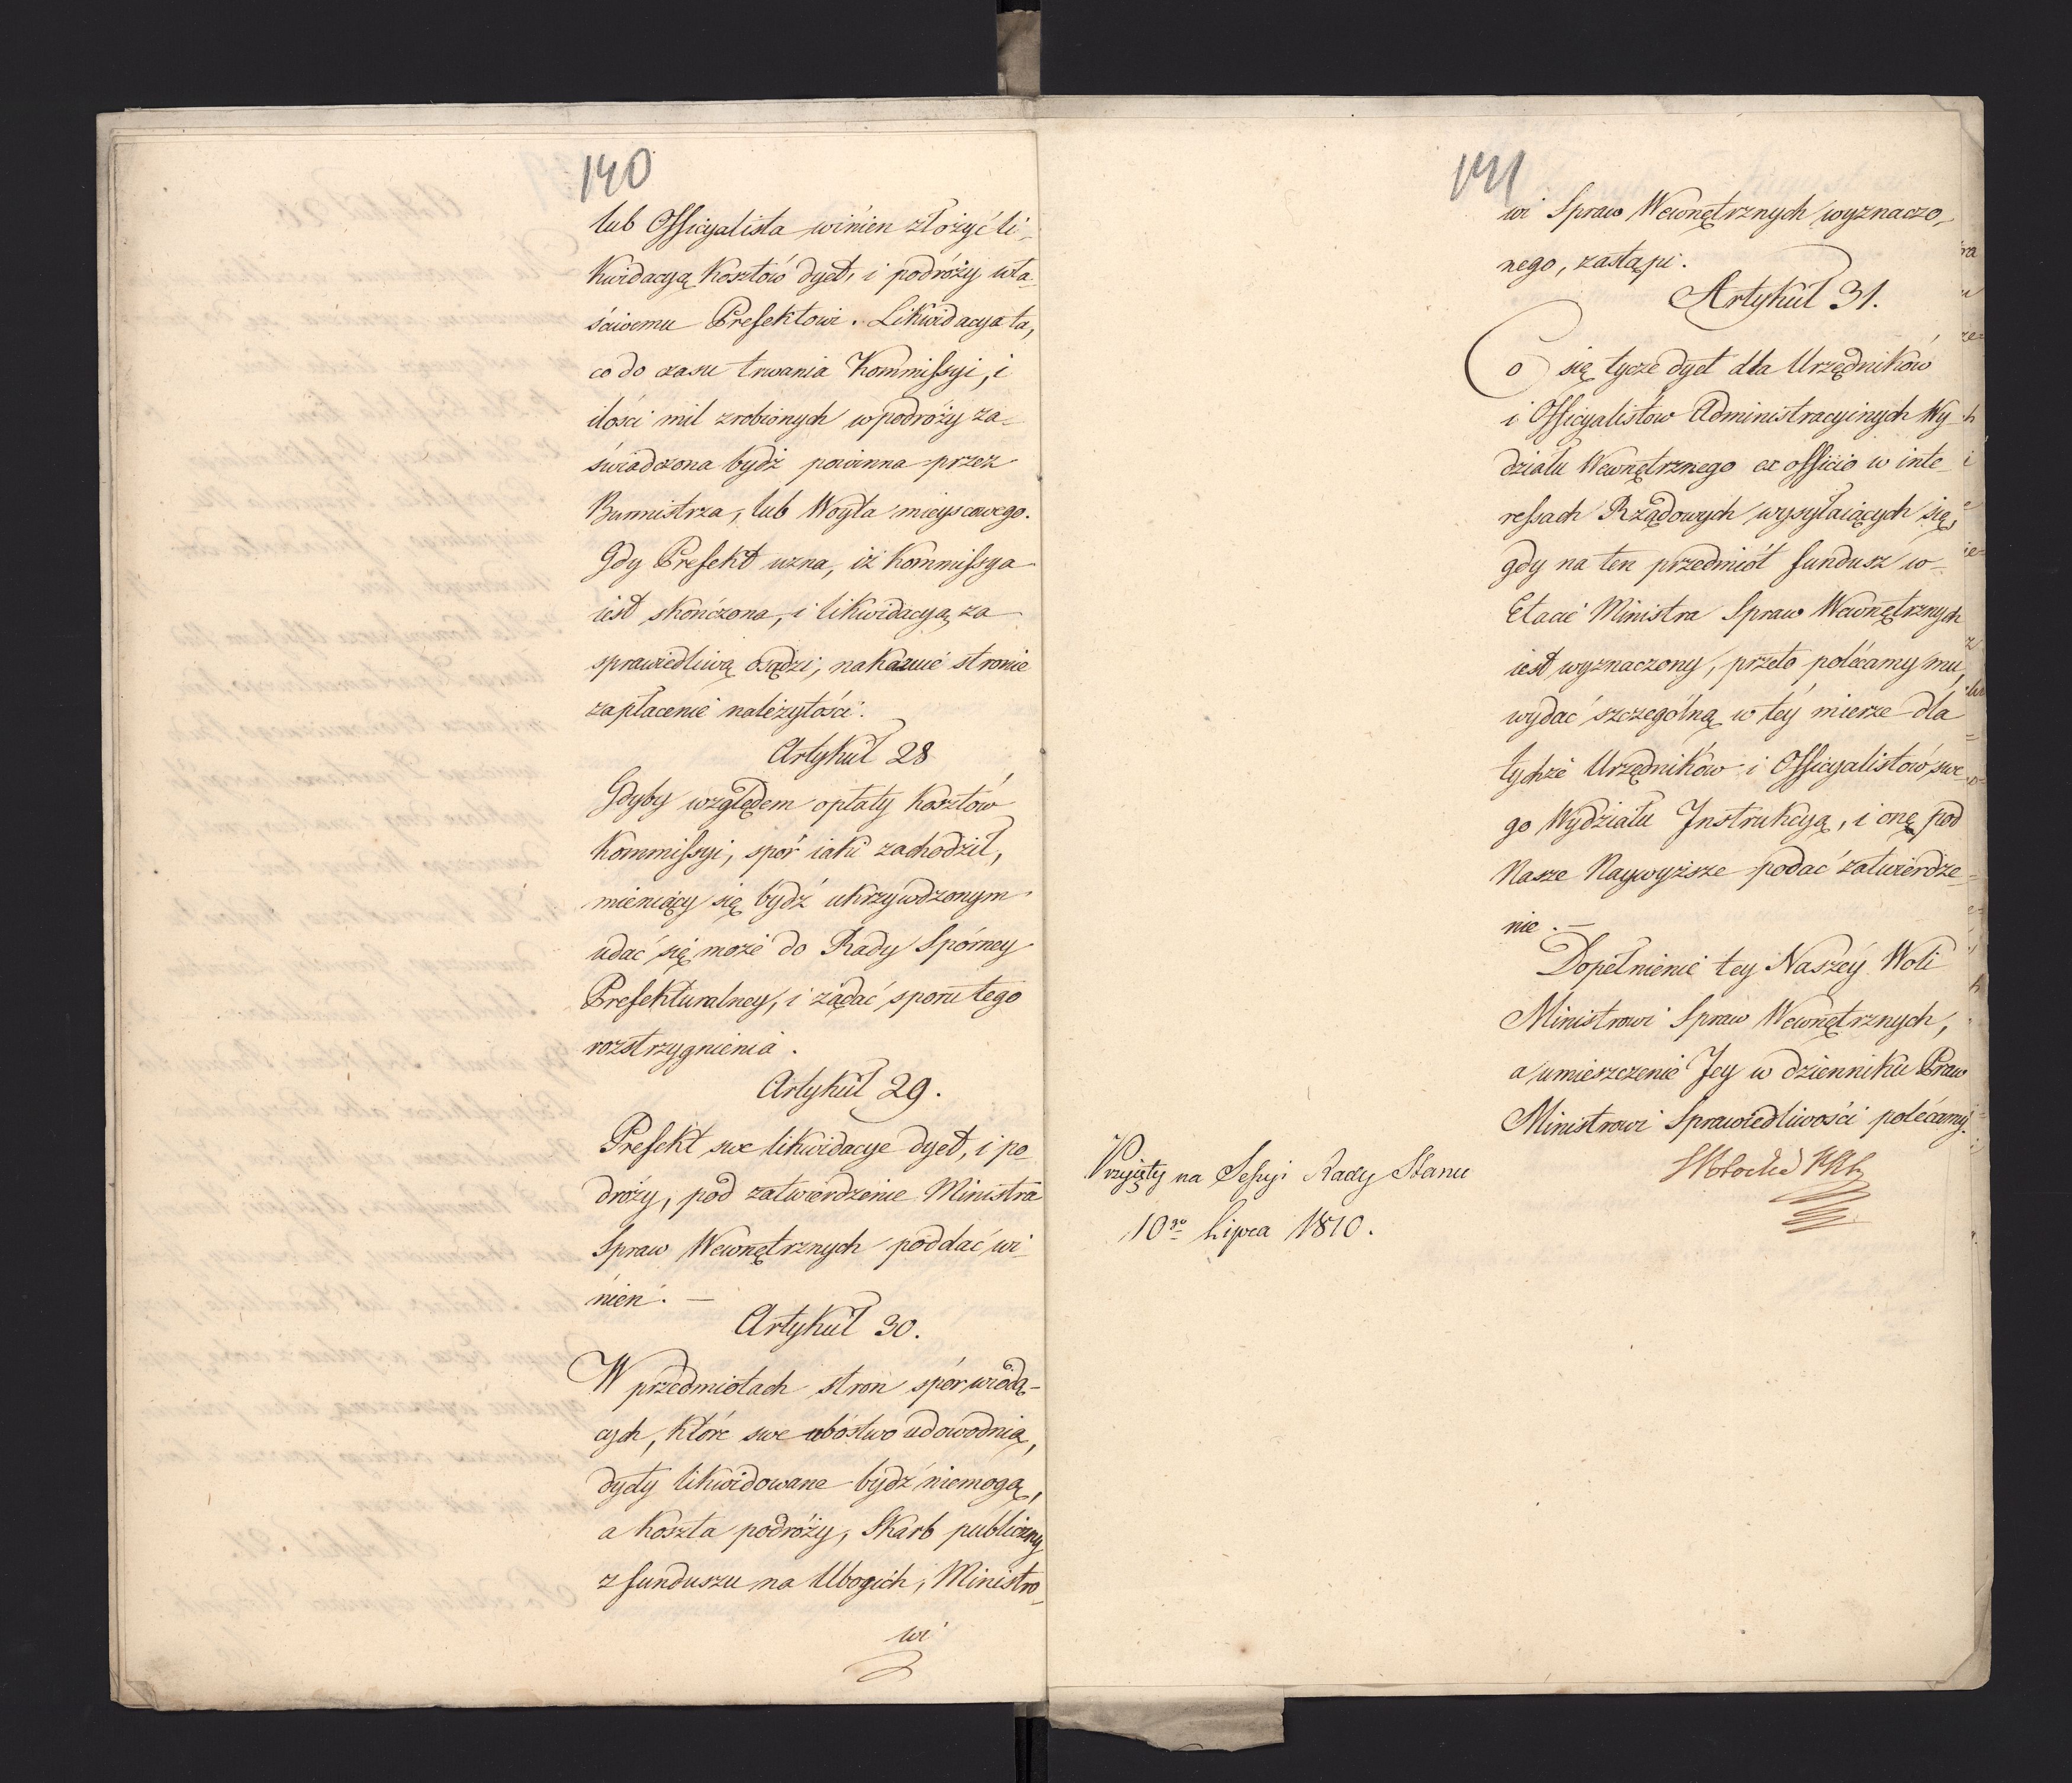 140
lub Officyalista winien złożyć li-
kwidacyą kosztów dyet, i podróży wła-
ściwemu Prefektowi. Likwidacya ta,
co do czasu trwania Kommissyi, i
ilości mil zrobionych w podróży za-
świadczona bydź powinna przez
Burmistrza, lub Woyta mieyscowego.
Gdy Prefekt uzna, iż Kommissya
iest skończona, i likwidacyą za
sprawiedliwą osądzi, nakazuie stronie
zapłacenie należytości.
Artykuł 28
Gdyby względem opłaty kosztów
Kommissyi, spór iaki zachodził,
mieniący się bydź ukrzywdzonym
udać się może do Rady Spórney
Prefekturalney, i żądać sporu tego
rozstrzygnienia.
Artykuł 29.
Prefekt swe likwidacye dyet, i po-
droży, pod zatwierdzenie Ministra
Spraw Wewnętrznych poddać wi-
nien. —
Artykuł 30.
W przedmiotach stron spór wiodą-
cych, które swe ubóstwo udowodnią,
dyety likwidowane bydź niemogą,
a koszta podróży, Skarb publiczny
z funduszu na Ubogich, Ministro-
wi
141
wi Spraw Wewnętrznych wyznaczo-
nego, zastąpi.
Artykuł 31.
Co się tycze dyet dla Urzędników
i Officyalistów Administracyinych Wy-
działu Wewnętrznego ex officio w inte-
ressach Rządowych wysyłaiących się,
gdy na ten przedmiot fundusz w
Etacie Ministra Spraw Wewnętrznych
iest wyznaczony, przeto polecamy mu,
wydać szczególną w tey mierze dla
tychże Urzędników i Officyalistów swe-
go Wydziału Instrukcyą, i onę pod
Nasze Naywyższe podać zatwierdze-
nie. —
Dopełnienie tey Naszey Woli
Ministrowi Spraw Wewnętrznych,
a umieszczenie Jey w dzienniku Praw
Ministrowi Sprawiedliwości polecamy.
Przyięty na Sessyi Rady Stanu
10go Lipca 1810.